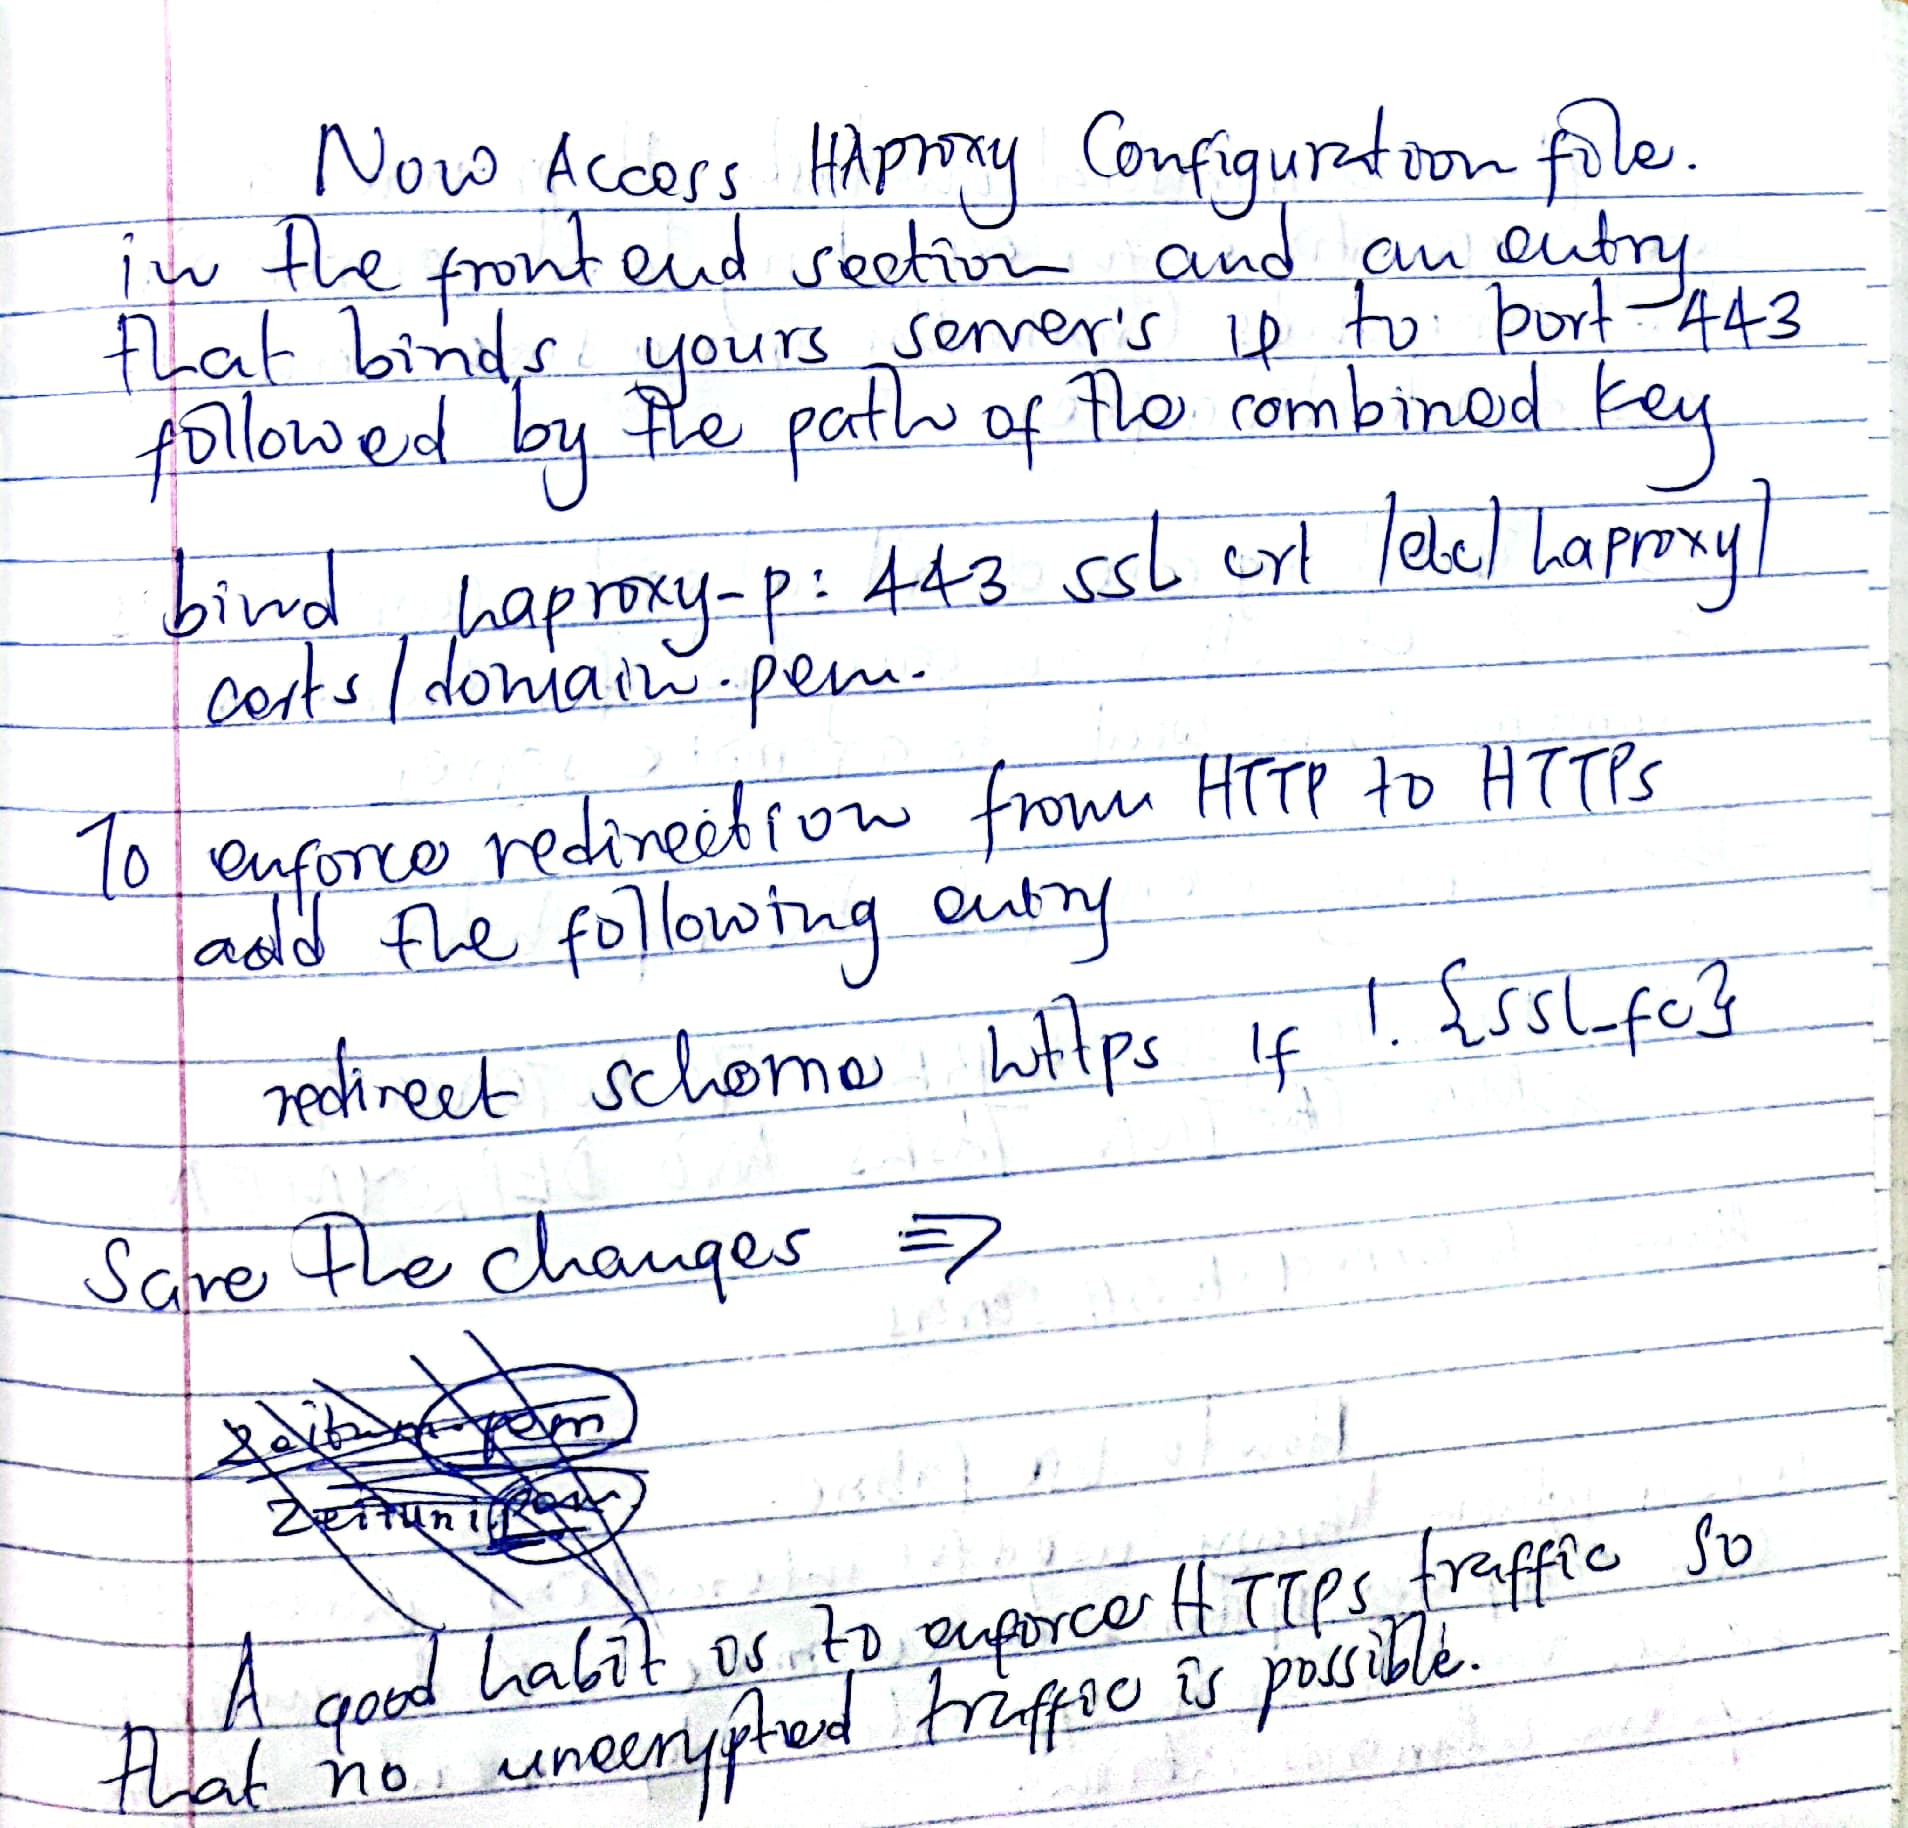 Now Access HAproxy Configuration file.
in the front end section and an entry
that binds yours server's ip to port 443
followed by the path of the combined key
bind haproxy-p: 443 ssl crt /etc/haproxy/
certs/domain.pem.
To enforce redirection from HTTP to HTTPs
add the following entry
redirect scheme https if ! {ssl_fc}
Save the changes =>
pem
Zeituni pem
A good habit is to enforce HTTPs traffic so
that no unecrypted traffic is possible.